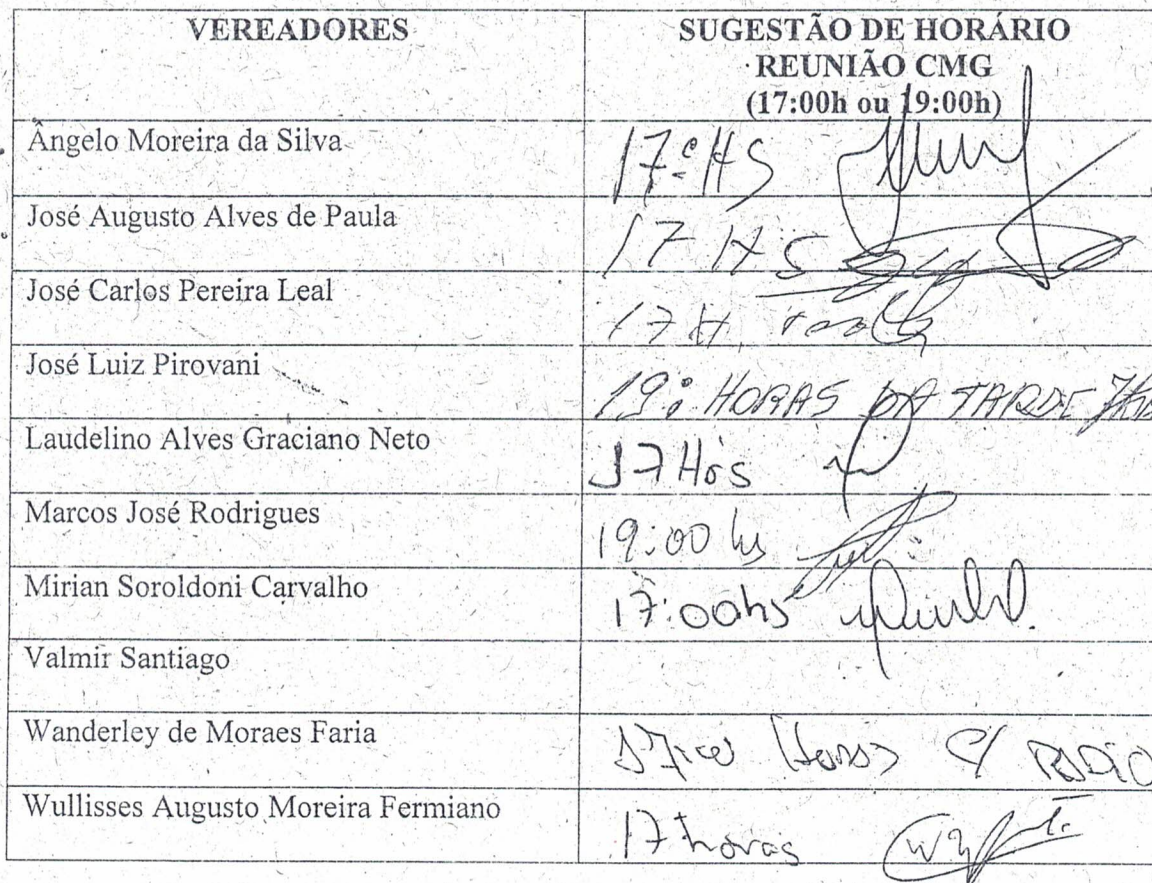 VEREADORES
SUGESTÃO DE HORÁRIO
REUNIÃO CMG
(17:00h ou 19:00h)
Ângelo Moreira da Silva
17:HS
José Augusto Alves de Paula
17 HS
José Carlos Pereira Leal
17 H
José Luiz Pirovani
19: HORAS DA TARDE
Laudelino Alves Graciano Neto
17 Hrs
Marcos José Rodrigues
19:00 hs
Mirian Soroldoni Carvalho
17:00hs
Valmir Santiago
Wanderley de Moraes Faria
17:00 Horas C/ RADIO
Wullisses Augusto Moreira Fermiano
17 horas